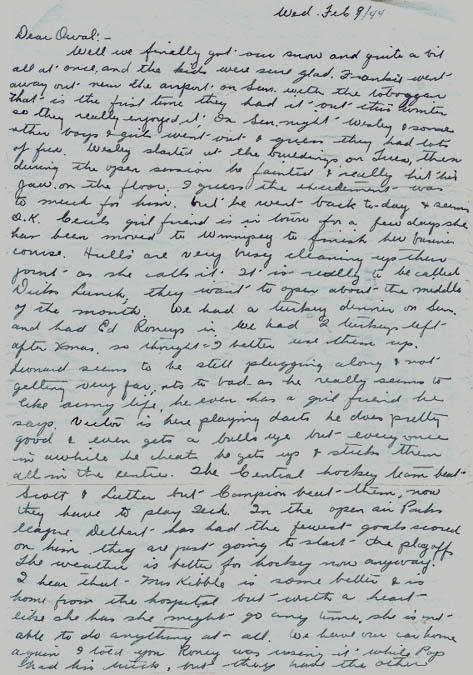 Wed. Feb 9/44
Dear Orval:-
Well we finally got our snow and quite a bit
all at once, and the kids were sure glad. Frankie went
away out near the airport on Sun. with the toboggan
that is the first time they had it out this winter
so they really enjoyed it. On Sun. night Wesley & some
other boys & girls went out & I guess they had lots
of fun. Wesley started at the buildings on Tues, then
during the open session he fainted & really hit his
jaw on the floor. I guess the excitement was
to much for him. but he went back to-day & seems
O.K. Cecils girl friend is in town for a few days she
has been moved to Winnipeg to finish her
course. Hull's are very busy cleaning up their
joint as she calls it. It is really to be called
Dicks Lunch, they want to open about the middle
of the month. We had a turkey dinner on Sun.
and had Ed Roneys in. We had 2 turkeys left
after Xmas. so thought I better use them up.
Leonard seems to be still plugging along & not
getting very far, its to bad as he really seems to
like army life, he even has a girl friend he
says. Victor is here playing darts he does pretty
good & even gets a bulls eye but every once
in awhile he cheats he gets up & sticks them
all in the centre. The Central hockey team beat
Scott & Luther but Campion beat them, now
they have to play Tech. In the open air Parks
league Delbert has had the fewest goals scored
on him they are just going to start the playoffs
The weather is better for hockey now anyway.
I hear that Mrs Kibble is some better & is
home from the hospital but with a heart
like she has she might go any time, she is not
able to do anything at all. We have our car home
again I told you Roney was using it while Pop
had his truck, but they have the other